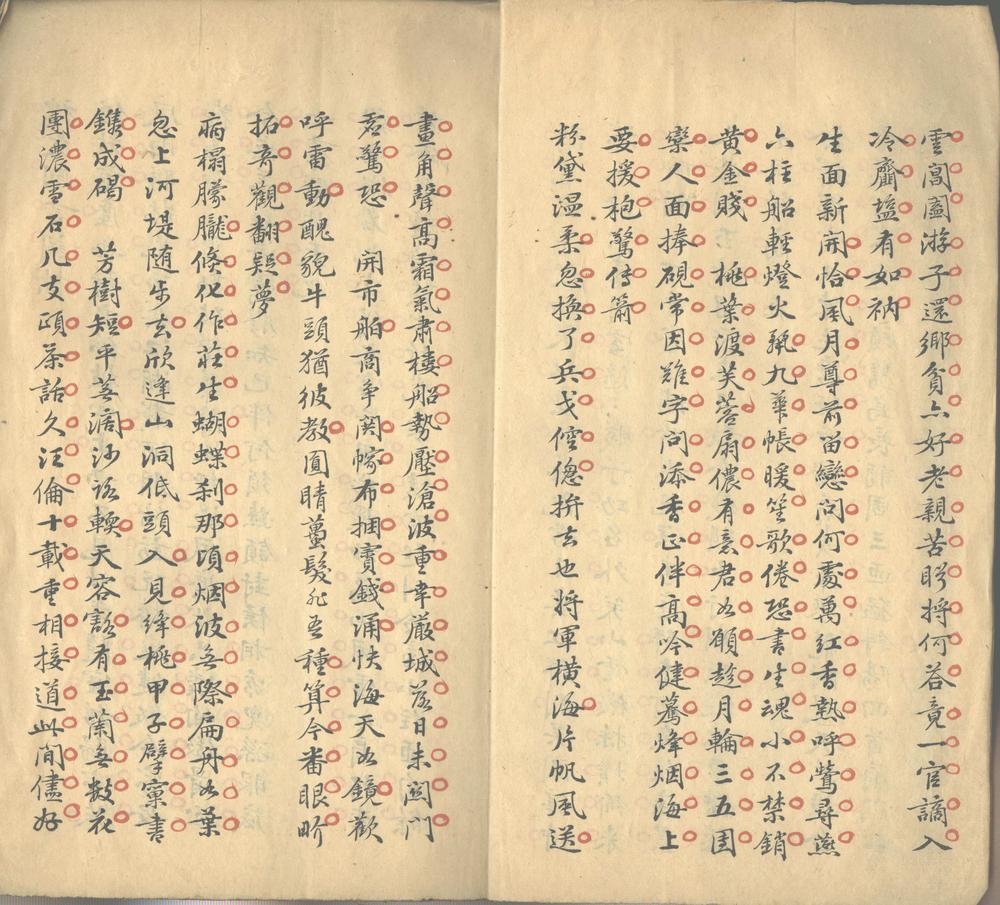 雲閶闔游子還鄉貧亦好老親苦盼將何荅竟一官謫入
冷齏塩有如衲
生面新開恰風月尊前留戀問何處萬紅香熱呼鶯尋燕
六柱船輕燈火飄九華帳暖笙歌倦恐書生魂小不禁銷
黃金賤　桃葉渡芙蓉扇儂有意君如願趁月輪三五固
欒人面捧硯常因難字問添香正伴高吟健驀烽烟海上
要援枹驚傳箭
粉黛温柔忽換了兵戈倥傯拚去也將軍橫海片帆風送
畫角聲高霜氣肅樓船勢壓滄波重幸嚴城落日未關門
君驚恐　開市舶商爭閧幏布捆賨錢涌快海天如鏡歡
呼雷動醜貌牛頭猶彼教圓睛蠆髮非吾種算今番眼界
拓奇觀翻疑夢
病榻朦朧倏化作莊生蝴蝶刹那頃烟波無際扁舟如葉
忽上河堤隨步去欣逢山洞低頭入見絳桃甲子擘窠書
鐫成碣　芳樹短平蕪濶沙路輭天容豁有玉蘭無數花
團濃雪石几支頤茶話久汪倫十載重相接道此間儘好